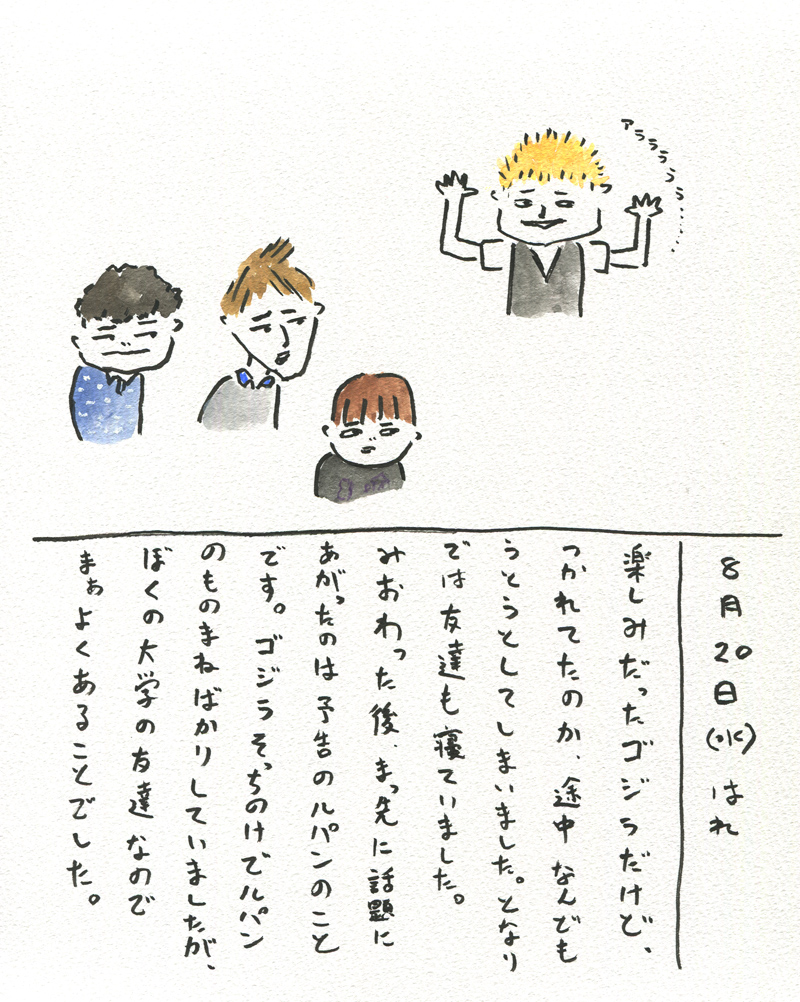 アラララララ……
8月20日(水) はれ
楽しみだったゴジラだけど、
つかれてたのか、途中なんども
うとうとしてしまいました。となり
では友達も寝ていました。
みおわった後、まっ先に話題に
あがったのは予告のルパンのこと
です。ゴジラそっちのけでルパン
のものまねばかりしていましたが、
ぼくの大学の友達なので
まぁよくあることでした。